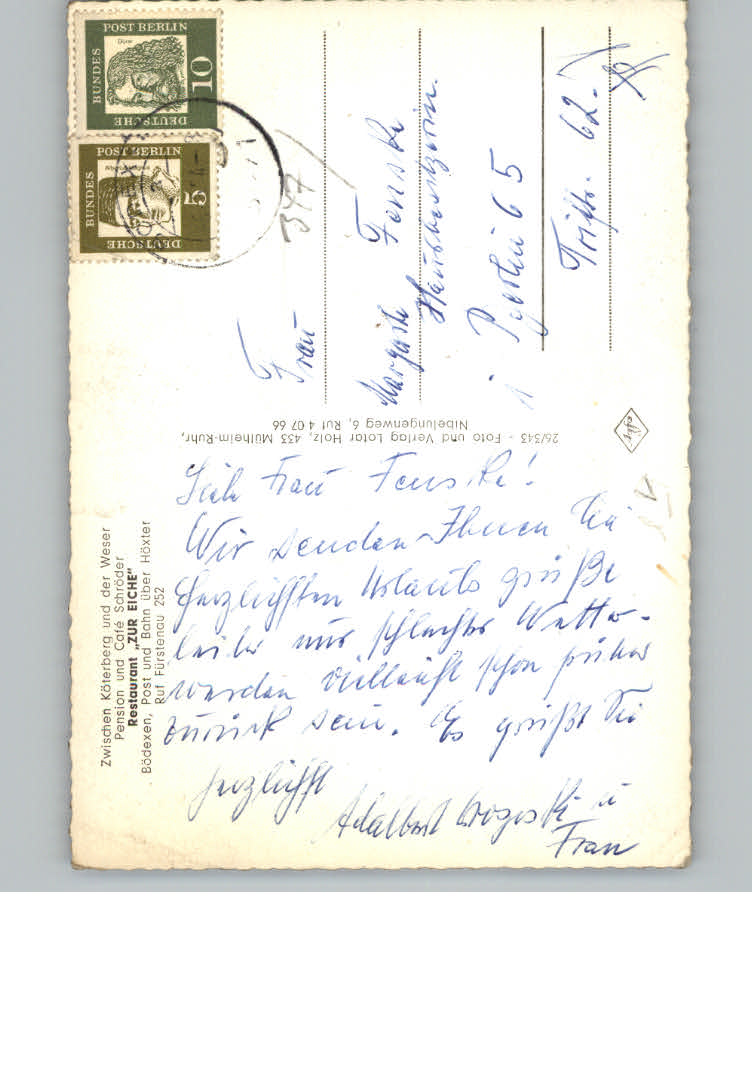 Zwischen Köterberg und der Weser
Pension und Café Schröder
Restaurant „ZUR EICHE"
Bödexen, Post und Bahn über Höxter
Ruf Fürstenau 252
Frau Fenske!
Wir senden Ihnen die
herzlichsten Urlaubs grüße
leider nur schlechtes Wetter
werden vielleicht schon früher
zurück sein. Es grüßt Sie
herzlichst
Adalbert u
Frau
26/343 - Foto und Verlag Lotar Holz, 433 Mülheim-Ruhr,
Nibelungenweg 6, Ruf 4 07 66
DEUTSCHE
BUNDES
POST BERLIN
Dürer
10
DEUTSCHE
BUNDES
POST BERLIN
5
347
Frau
Margarete Fenske
Hausbesitzerin.
1 Berlin 65
Triftstr. 62